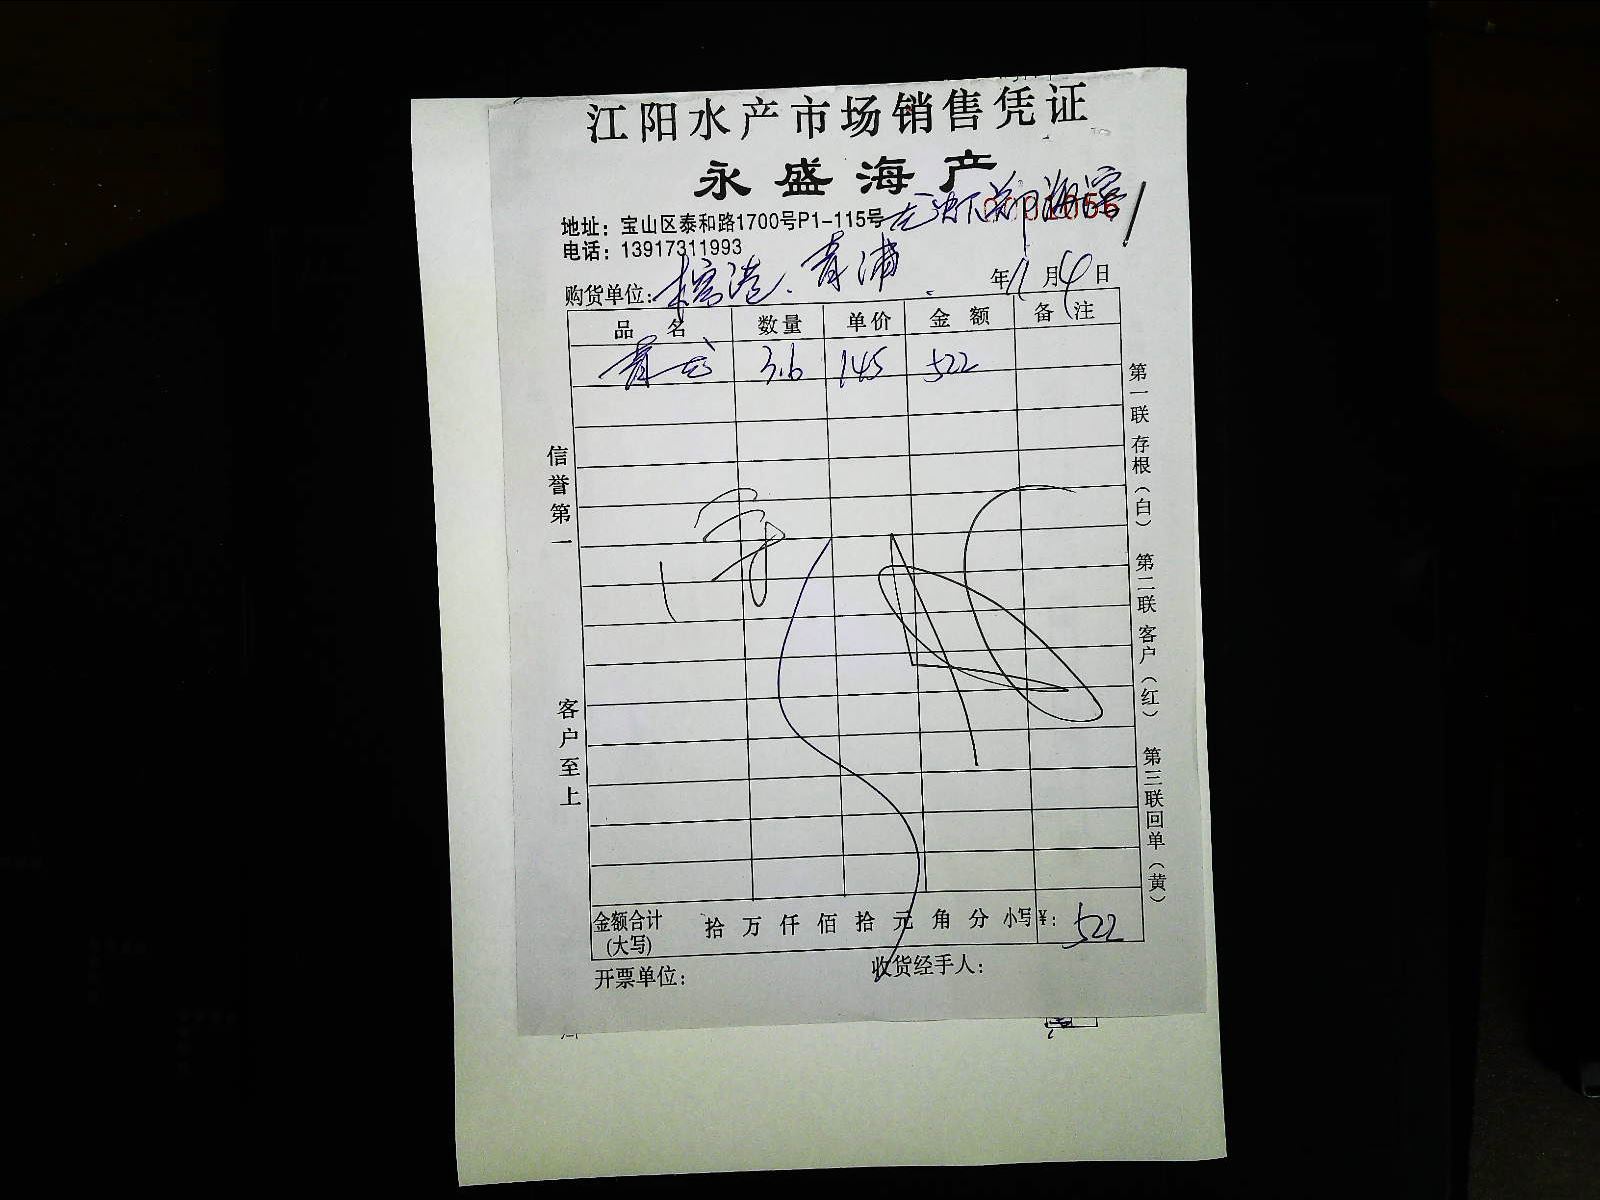 江阳水产市场销售凭证
永盛海产
地址：宝山区泰和路1700号P1-115号
电话：13917311993
购货单位： 青浦 年11月4日
品名 数量 单价 金额 备注
青龙 3.6 145 522
信誉第一
客户至上
第一联 存根（白） 第二联 客户（红） 第三联 回单（黄）
金额合计 拾 万 仟 佰 拾 元 角 分 小写¥：522
（大写）
开票单位： 收货经手人：